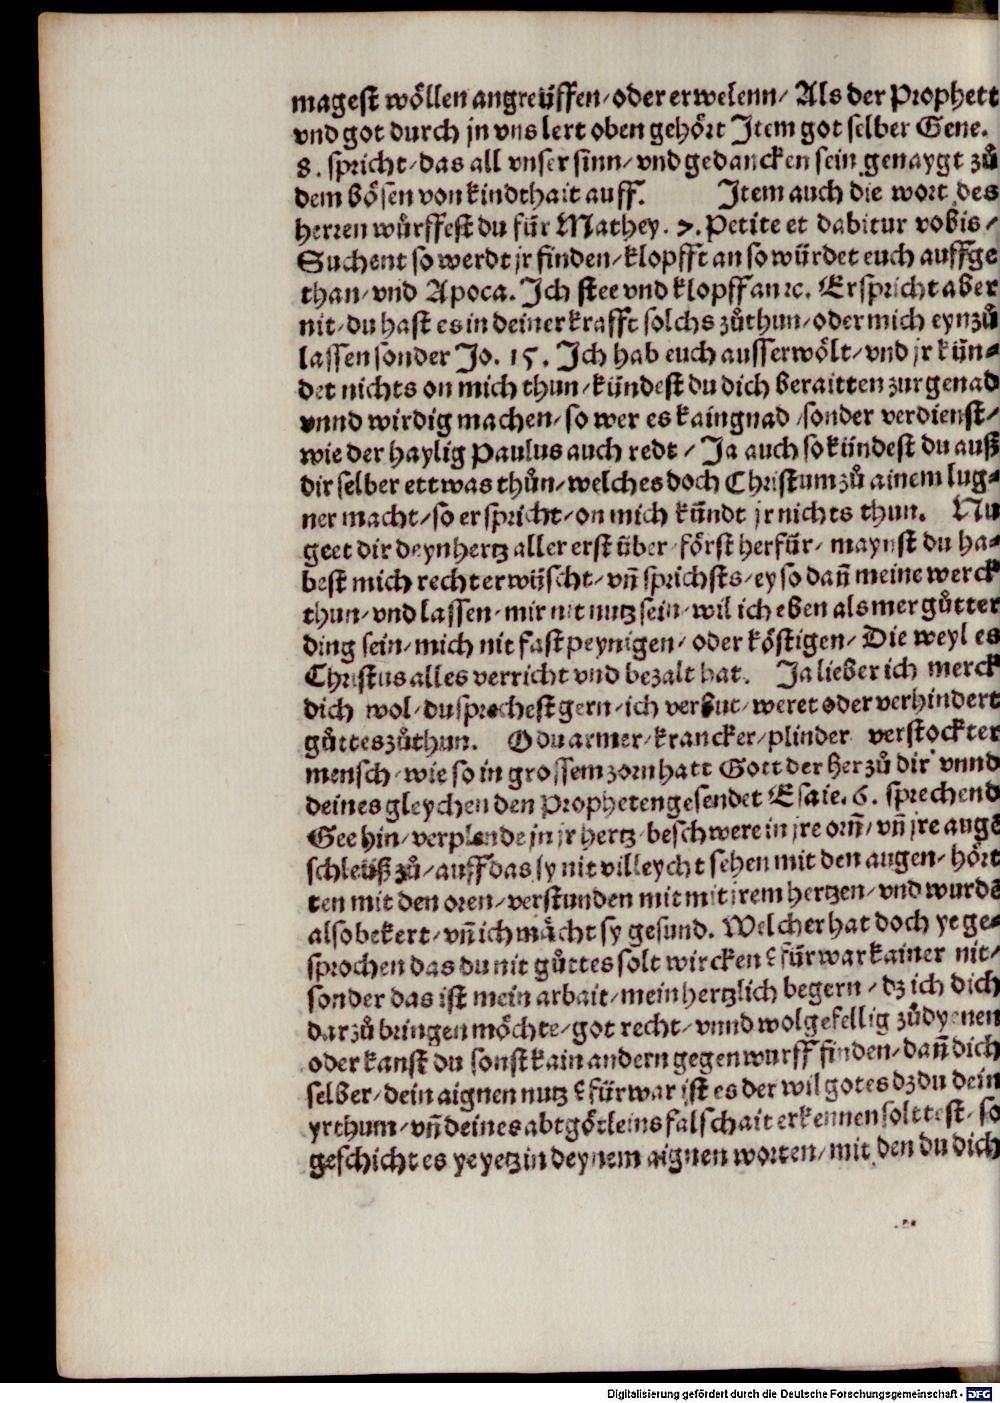 magest wöllen angreüffen/ oder erwelenn/ Als der Prophett
vnd got durch jn vns lert oben gehört Jtem got selber Gene.
8. spricht/ das all vnser sinn/ vnd gedancken sein genaygt zů
dem bösen von kindthait auff. Jtem auch die wort des
herren würffest du für Mathey. 7. Petite et dabitur vobis/
Suchent so werdt jr finden/ klopfft an so würdet euch auffge
than/ vnd Apoca. Jch stee vnd klopff an ꝛc. Er spricht aber
nit/ du hast es in deiner krafft solchs zůthun/ oder mich eynzů
lassen sonder Jo. 15. Jch hab euch ausserwölt/ vnd jr kün-
det nichts on mich thun/ kündest du dich beraitten zur genad
vnnd wirdig machen/ so wer es kain gnad/ sonder verdienst/
wie der haylig Paulus auch redt/ Ja auch so kündest du auß
dir selber ettwas thůn/ welches doch Christum zů ainem lug-
ner macht/ so er spricht/ on mich kündt jr nichts thun. Nu
geet dir deyn hertz aller erst über/ först herfür/ maynst du ha-
best mich recht erwüscht/ vñ sprichsts/ ey so dañ meine werck
thun/ vnd lassen/ mir nit nutz sein/ wil ich eben als mer gůtter
ding sein/ mich nit fast peynigen/ oder köstigen/ Die weyl es
Christus alles verricht vnd bezalt hat. Ja lieber ich merck
dich wol/ du sprechest gern/ ich verbut/ weret oder verhindert
gůttes zůthun. O du armer/ krancker/ plinder verstockter
mensch/ wie so in grossem zorn hatt Gott der Her zů dir vnnd
deines gleychen den Propheten gesendet Esaie. 6. sprechend
Gee hin/ verplende jn jr hertz/ beschwere in jre orñ/ vñ jre augē
schleüß zů/ auff das sy nit villeycht sehen mit den augen/ hört
ten mit den oren/ verstunden mit mit jrem hertzen/ vnd wurdē
also bekert/ vñ ich mächt sy gesund. Welcher hat doch ye ge-
sprochen das du nit gůttes solt wircken? fürwar kainer nit/
sonder das ist mein arbait/ mein hertzlich begern/ dz ich dich
darzů bringen möchte/ got recht/ vnnd wolgefellig zůdyenen
oder kanst du sonst kain andern gegenwurff finden/ dañ dich
selber/ dein aignen nutz? fürwar ist es der wil gotes dz du dein
yrthum/ vñ deines abtgötleins falschait erkennen solttest/ so
geschicht es ye yetz in deynem aignen worten/ mit den du dich
Digitalisierung gefördert durch die Deutsche Forschungsgemeinschaft - DFG